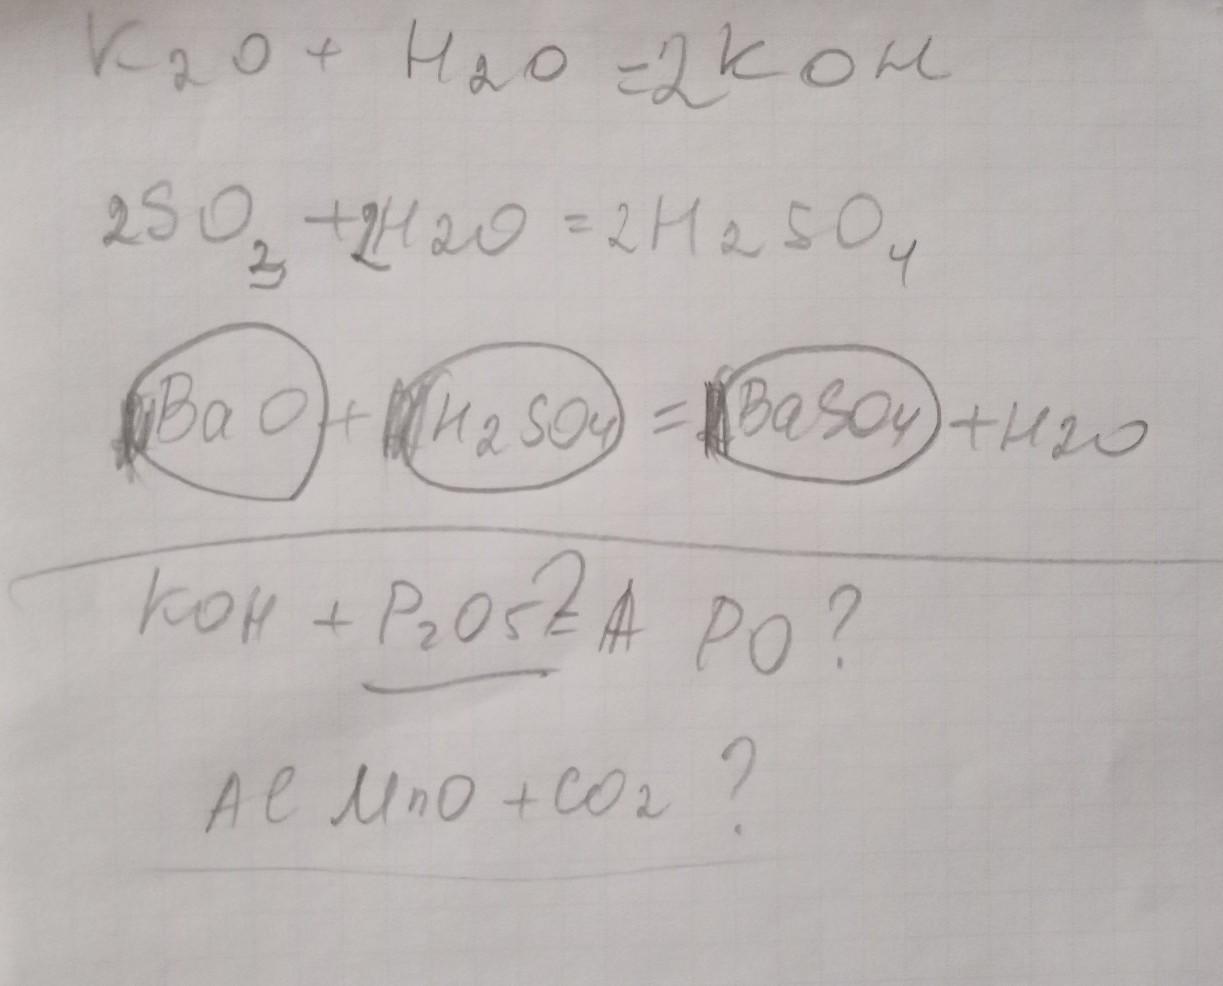 K2O + H2O = 2KOH
2SO3 + 2H2O = 2H2SO4
BaO + H2SO4 = BaSO4 + H2O
KOH + P2O5 = A PO ?
Al MnO + CO2 ?